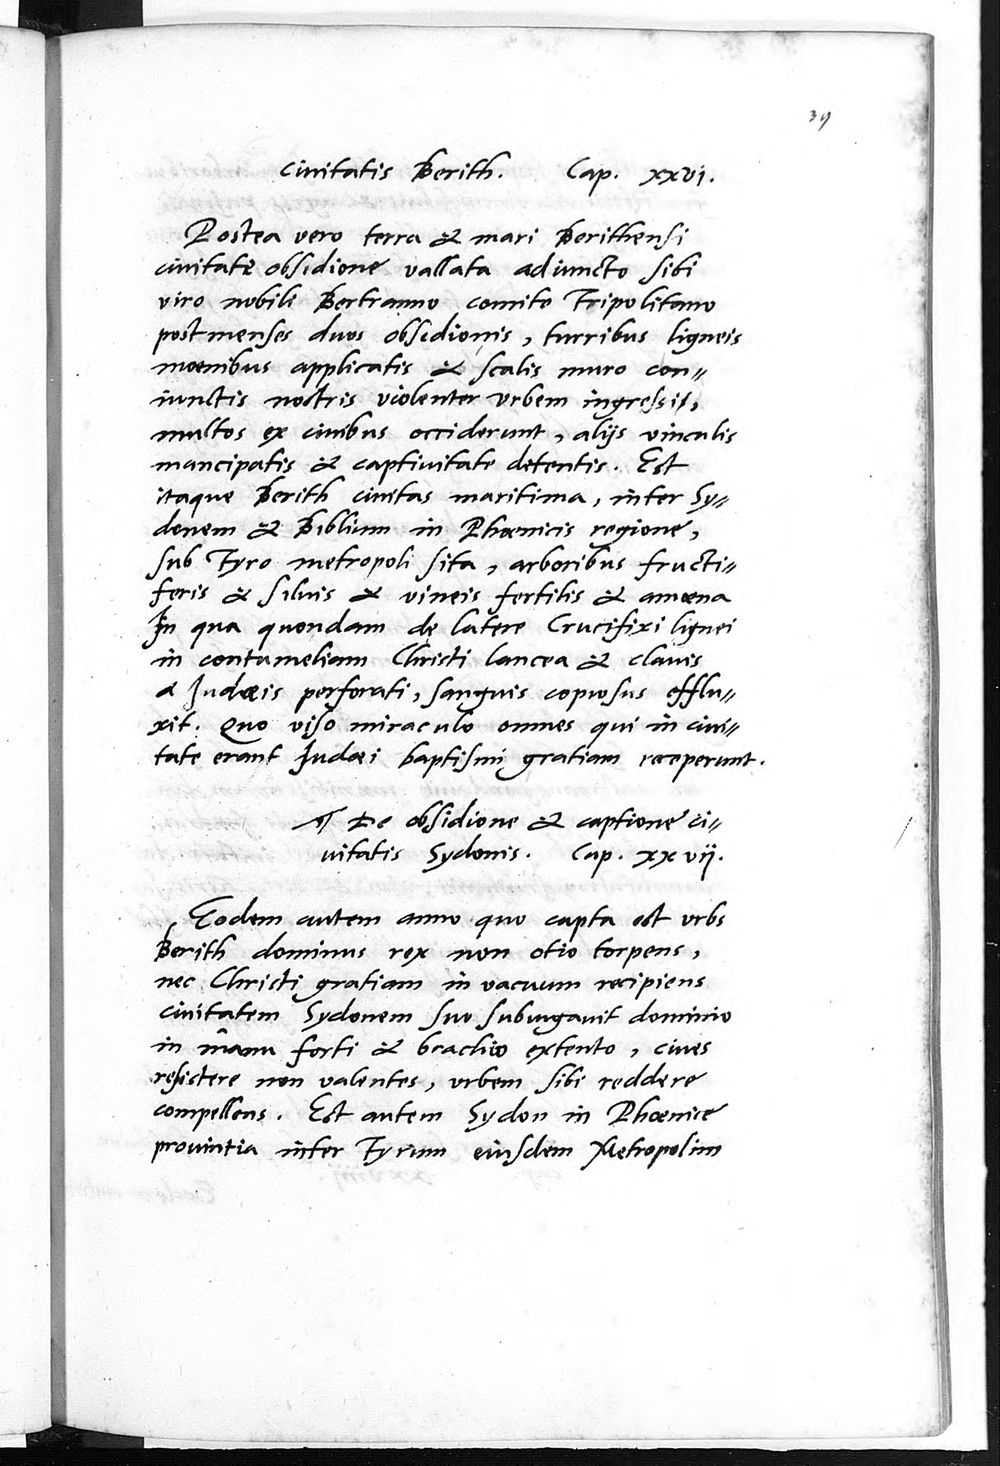 39
ciuitatis Berith. Cap. xxvj.
Postea vero terra & mari Berithensi
ciuitate obsidione vallata adiuncto sibi
viro nobili Bertranno comite Tripolitano
post menses duos obsidionis, turribus ligneis
moenibus applicatis & scalis muro con〃
iunctis nostris violenter vrbem ingressis,
multos ex ciuibus occiderunt, alijs vinculis
mancipatis & captiuitate detentis. Est
itaque Berith ciuitas maritima, inter Sy〃
donem & Biblium in Phœnicis regione,
sub Tyro metropoli sita, arboribus fructi〃
feris & siluis & vineis fertilis & amœna
In qua quondam de latere Crucifixi lignei
in contumeliam Christi lancea & clauis
a Judæis perforati, sanguis copiosus efflu〃
xit. Quo viso miraculo omnes qui in ciui〃
tate erant Judæi baptismi gratiam receperunt.
¶ De obsidione & captione ci〃
uitatis Sydonis. Cap. xxvij.
Eodem autem anno quo capta est vrbs
Berith dominus rex non otio torpens,
nec Christi gratiam in vacuum recipiens
ciuitatem Sydonem suo subiugauit dominio
in mânu forti & brachio extento, ciues
resistere non valentes, vrbem sibi reddere
compellens. Est autem Sydon in Phœnice
prouintia inter Tyrum eiusdem Metropolim